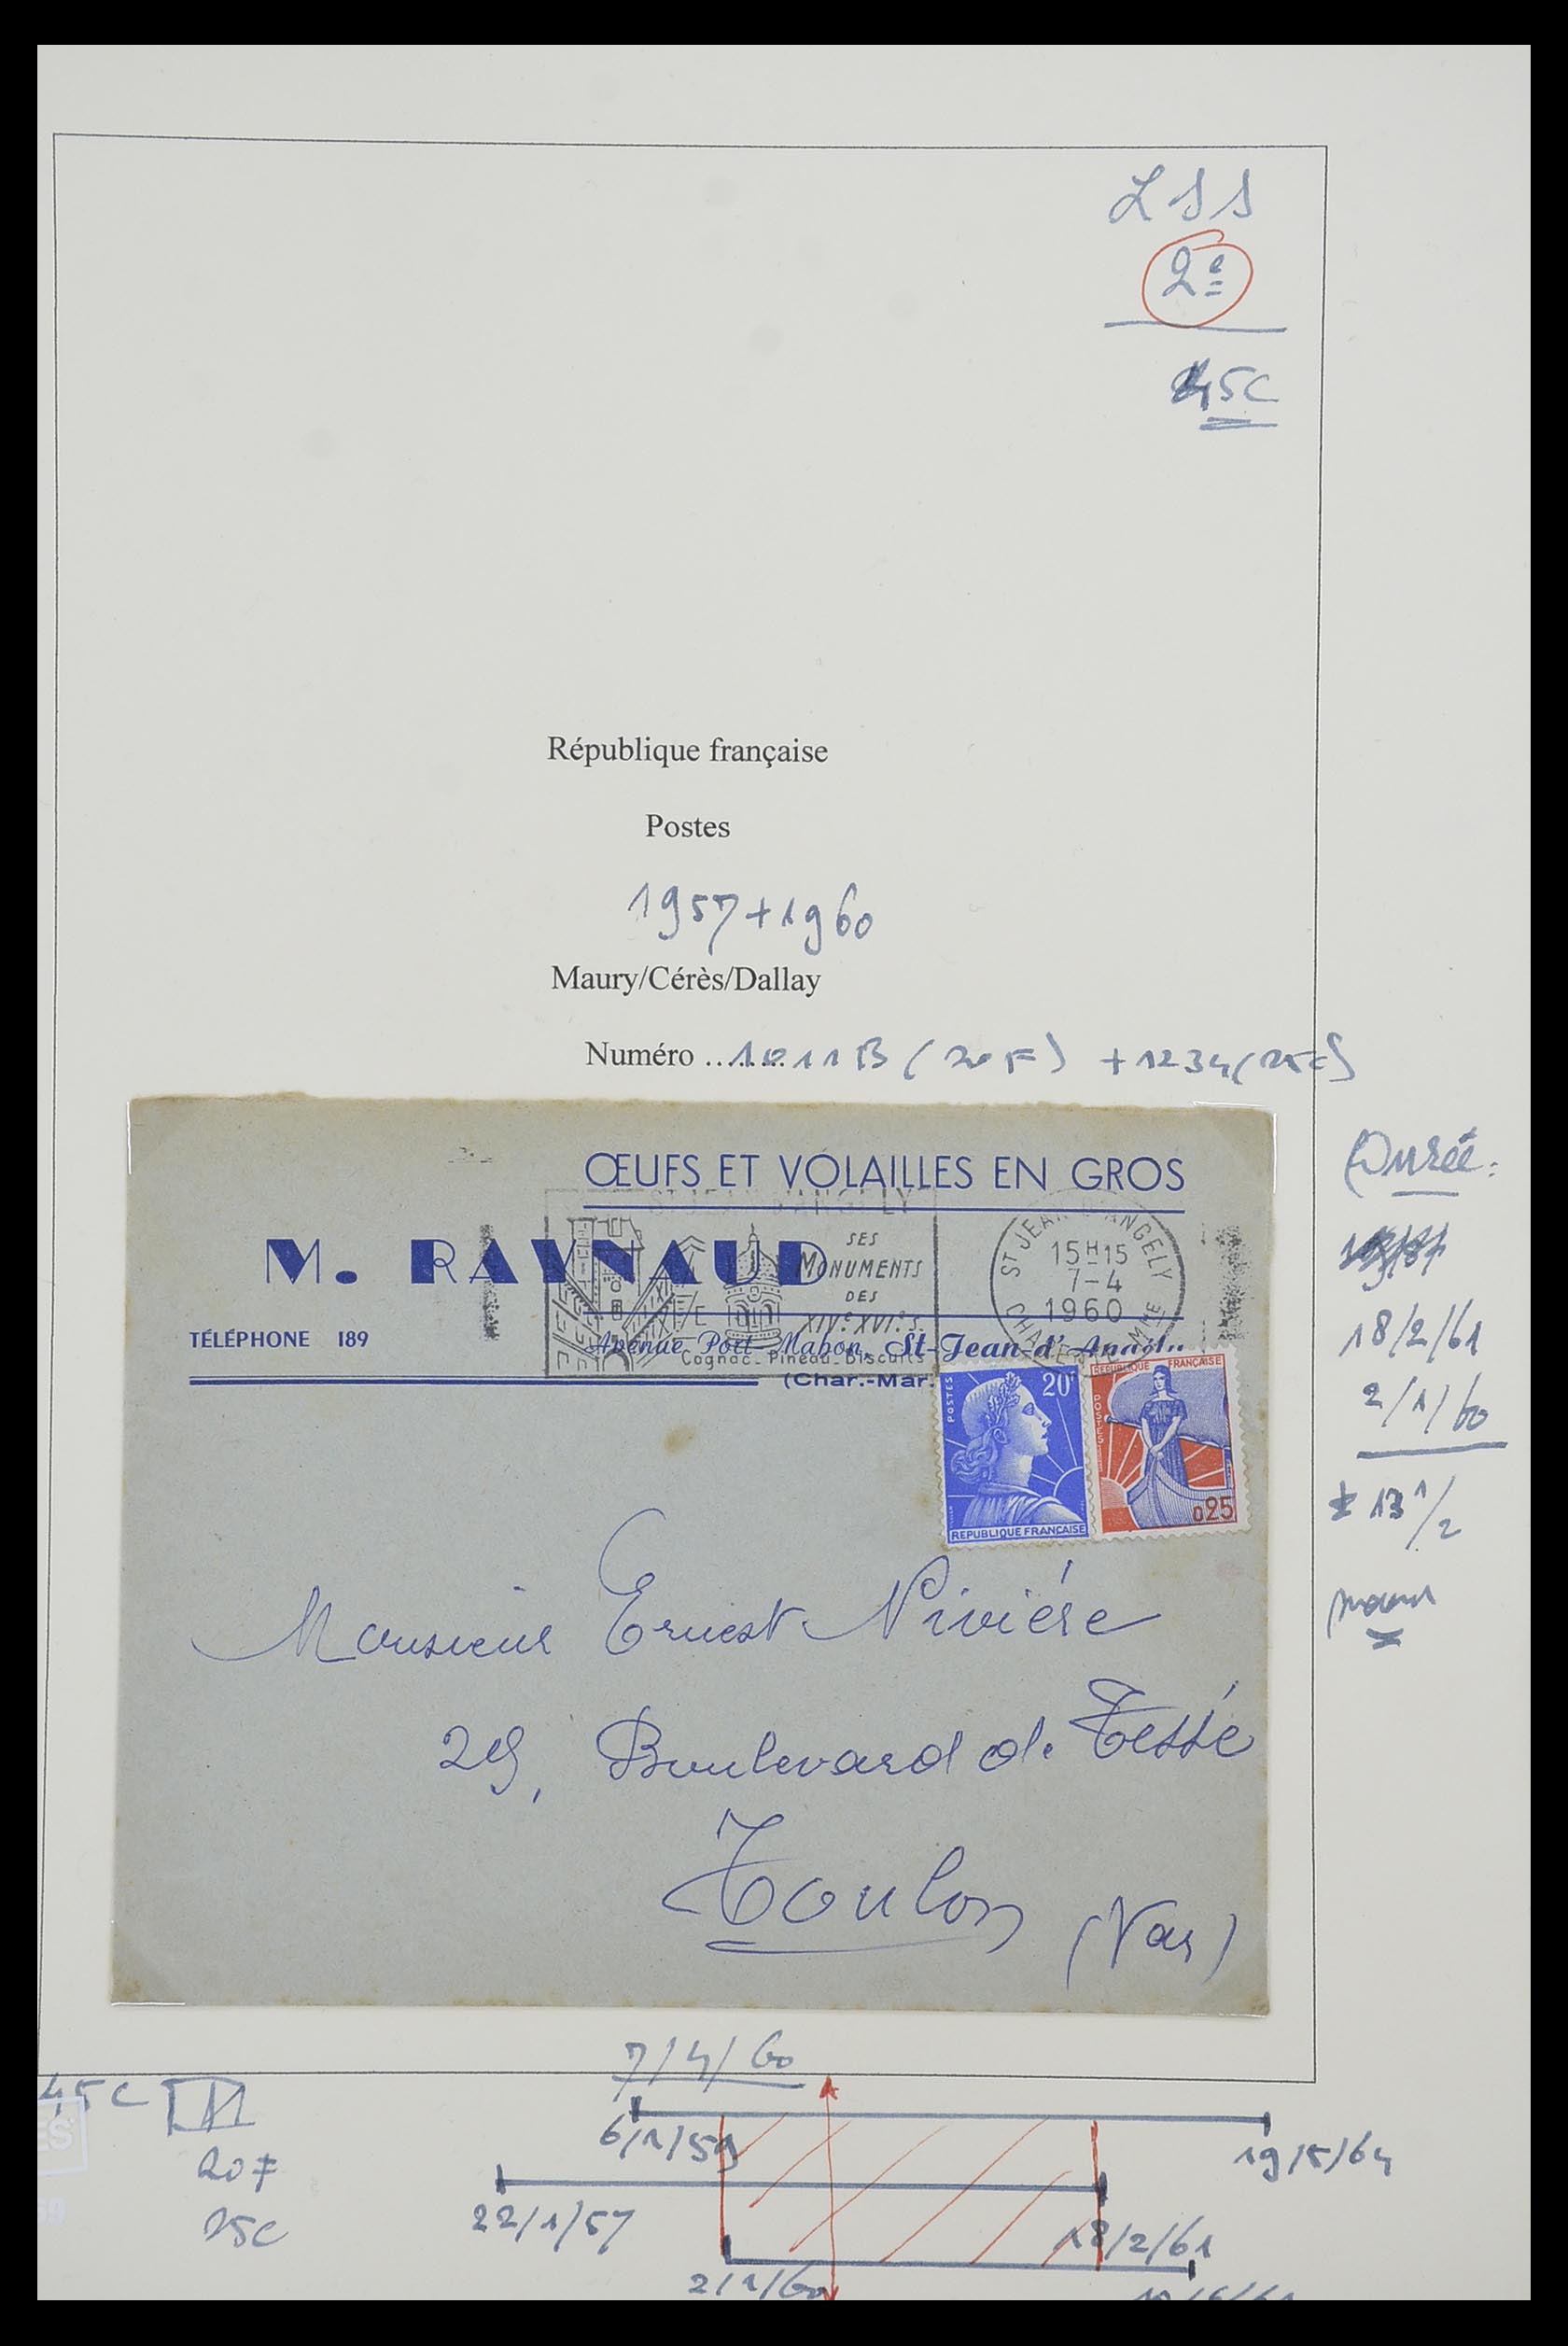 LSS
2e
45C
République française
Postes
1957+1960
Maury/Cérès/Dallay
Numéro ....1011B (20F) +1234(25c)
ŒUFS ET VOLAILLES EN GROS
M. RAYNAUD
TÉLÉPHONE 189
Avenue Port-Mahon, St-Jean-d'Angély
(Char.-Mar.
ST JEAN D'ANGELY
SES
MONUMENTS
DES
XIVe XVIe S.
Cognac_Pineau_Biscuits
ST JEAN D'ANGELY
15H15
7-4
1960
CHARENTE MME
POSTES
20F
REPUBLIQUE FRANÇAISE
REPUBLIQUE FRANÇAISE
POSTES
0,25
Durée:
18/2/61
2/1/60
± 13 1/2
Monsieur Ernest Rivière
29, Boulevard de Tessé
Toulon (Var)
7/4/60
45C
20F
25C
6/1/59
19/5/64
22/1/57
18/2/61
2/1/60